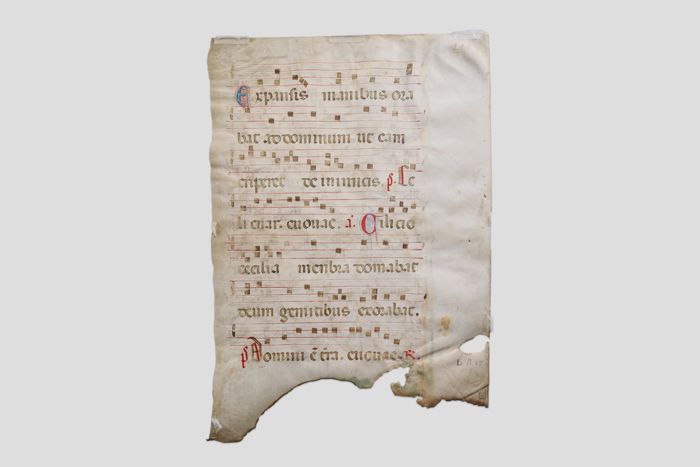 Expansis manibus ora
bat ad dominum ut eam
eriperet de inimicis. p. Ce
li enar. euouae. a. Cilicio
cecilia menbra domabat
deum gemitibus exorabat.
p Domini ē tr̄a. euouae. R.